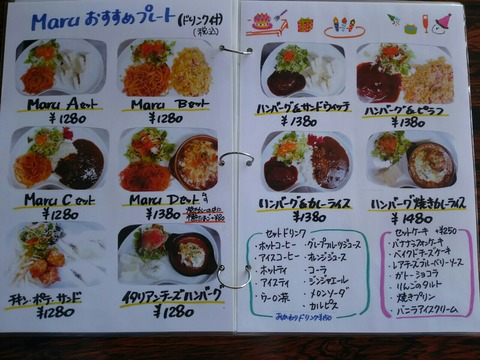 Maru おすすめプレート (ドリンク付)
(税込)
Maru Aセット
¥1280
Maru Bセット
¥1280
Maru Cセット
¥1280
Maru Dセット
¥1380
チキン・ポテ・サンド
¥1280
イタリアンチーズハンバーグ
¥1280
ハンバーグ&サンドウィッチ
¥1380
ハンバーグ&ピラフ
¥1380
ハンバーグ&カレーライス
¥1380
ハンバーグ焼きカレーライス
¥1480
セットドリンク
・ホットコーヒー
・アイスコーヒー
・ホットティ
・アイスティ
・ウーロン茶
・グレープフルーツジュース
・オレンジジュース
・コーラ
・ジンジャエール
・メロンソーダ
・カルピス
おかわりドリンク¥150
セットケーキ +¥250
・バナナシフォンケーキ
・ベイクドチーズケーキ
・レアチーズブルーベリーソース
・ガトーショコラ
・りんごのタルト
・焼きプリン
・バニラアイスクリーム